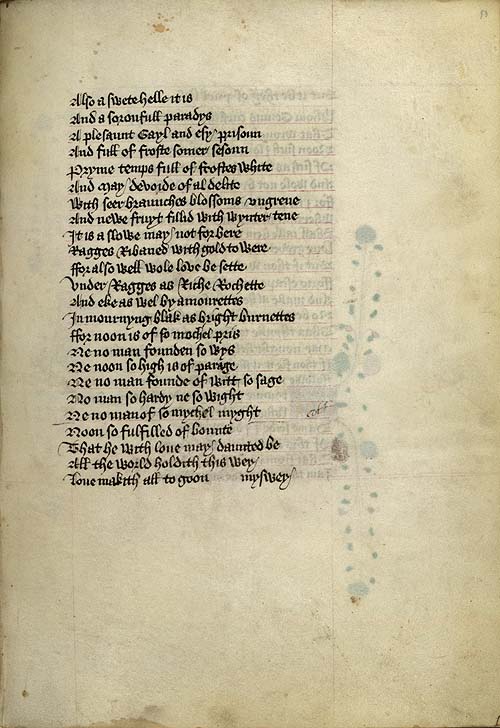 Also a swete helle it is
And a soroufull paradys
A plesaunt Gayl and esy prisoun
And full of froste somer sesoun
Pryme temps full of frostes white
And may devoide of al delite
With seer braunches blossoms vngrene
And newe fruyt fillid with wynter tene
It is a slowe may not forbere
Ragges Ribaned with gold to were
ffor also well wole love be sette
Vnder Ragges as Riche Rochette
And eke as wel by amourettes
In mournyng blak as bright burnettes
ffor noon is of so mochel pris
Ne no man founden so wys
Ne noon so high is of parage
Ne no man founde of witt so sage
No man so hardy ne so wight
Ne no man of so mychel myght
Noon so fulfilled of bounte
That he with love may daunted be
All the world holdith this wey
Love makith all to goon myswey